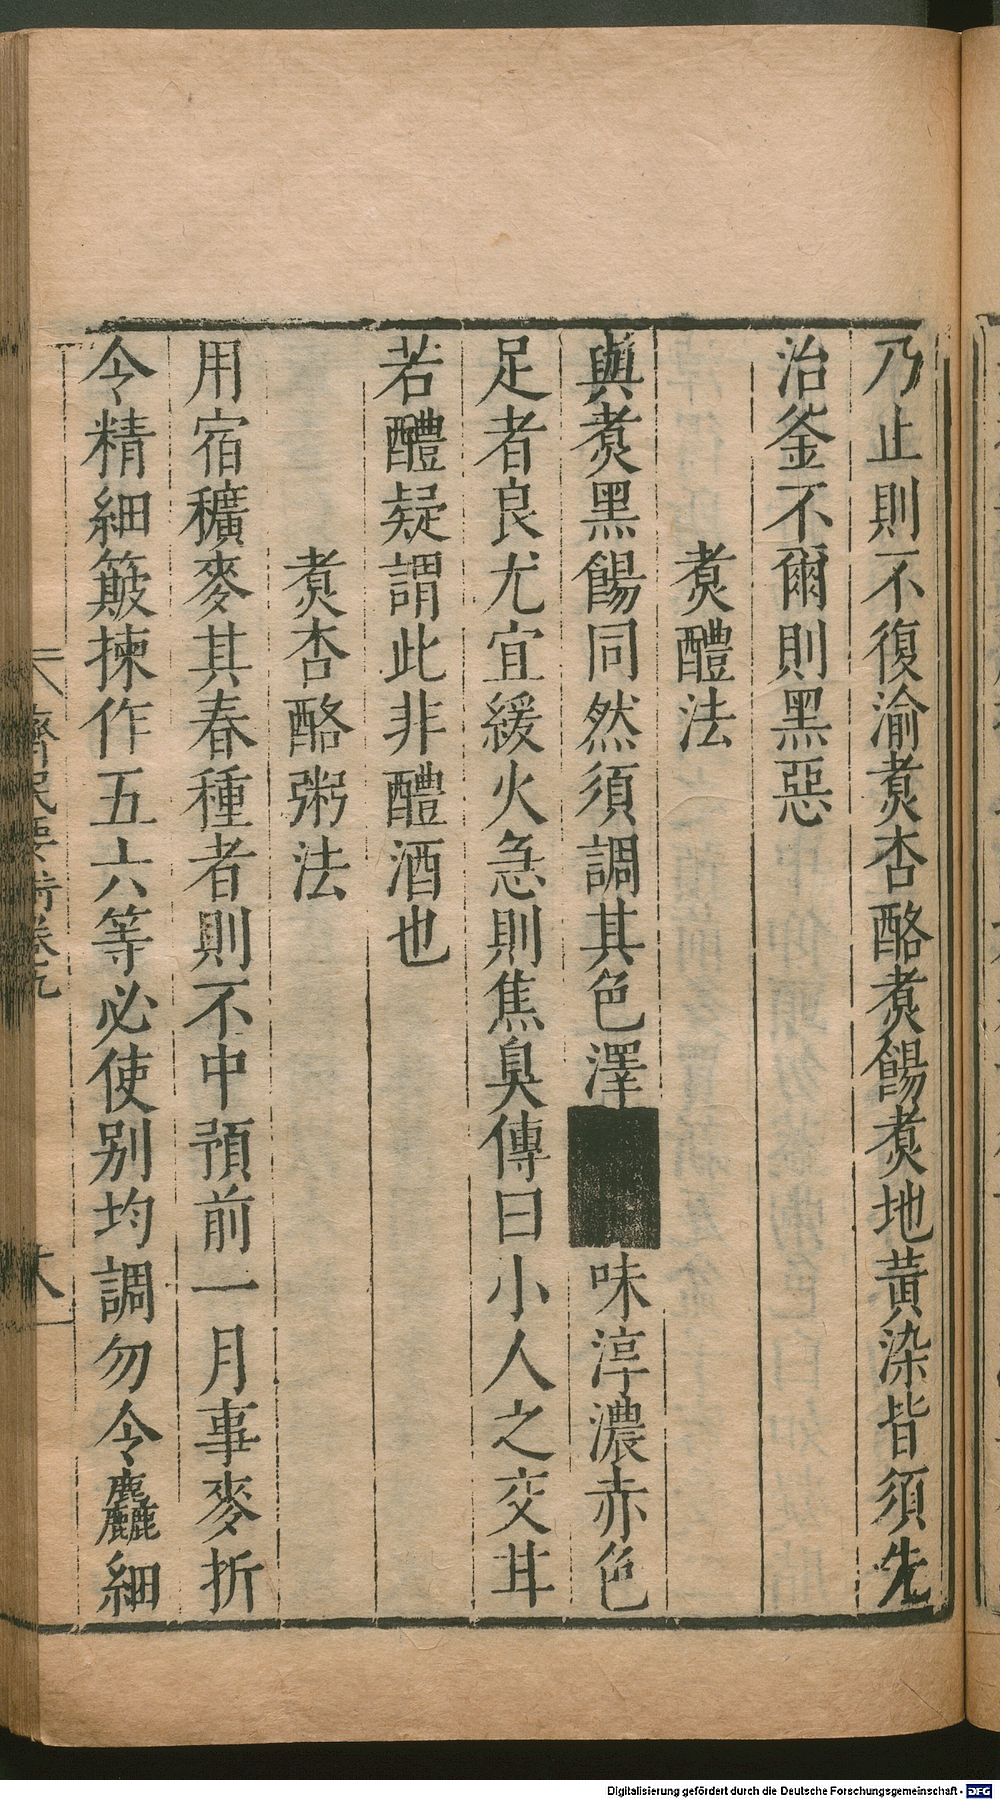 乃止則不復渝煑杏酪煑餳煑地黃染皆須先
治釜不爾則黑惡
煑醴法
與煑黑餳同然須調其色澤
味淳濃赤色
足者良尤宜緩火急則焦臭傳曰小人之交甘
若醴疑謂此非醴酒也
煑杏酪粥法
用宿穬麥其春種者則不中預前一月事麥折
令精細簸揀作五六等必使别均調勿令麤細
齊民要術卷九
Digitalisierung gefördert durch die Deutsche Forschungsgemeinschaft - DFG